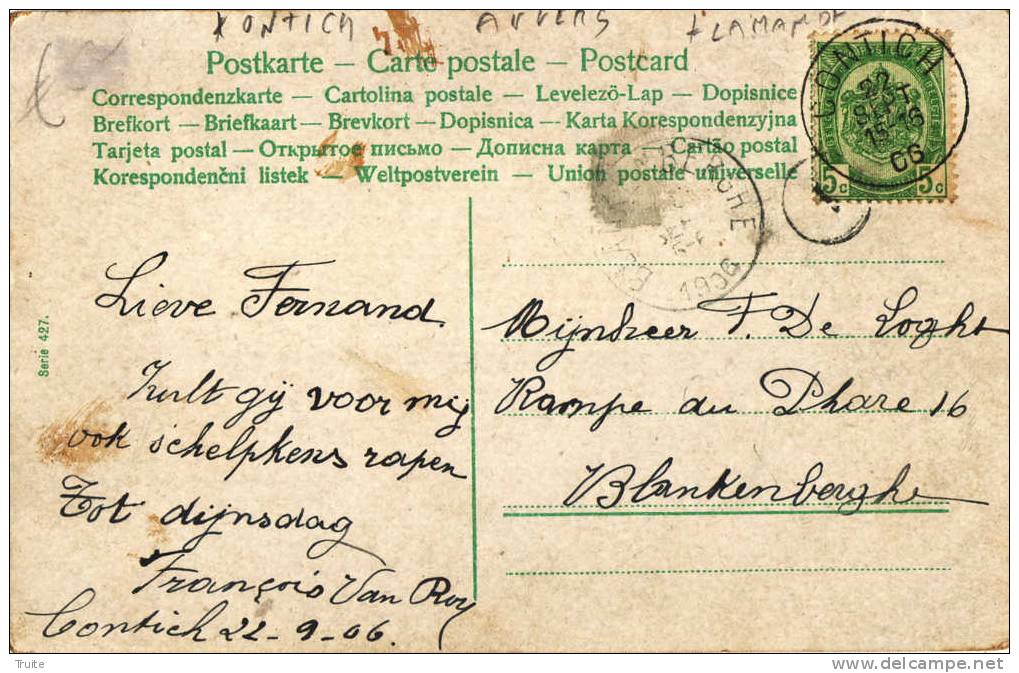 KONTICH ANVERS FLAMANDE
Postkarte — Carte postale — Postcard
Correspondenzkarte — Cartolina postale — Levelezö-Lap — Dopisnice
Brefkort — Briefkaart — Brevkort — Dopisnica — Karta Korespondenzyjna
Tarjeta postal — Открытое письмо — Дописна карта — Cartão postal
Korespondenční listek — Weltpostverein — Union postale universelle
CONTICH
06
5c 5c
1906
Serie 427.
Lieve Fernand.
Zult gij voor mij
ook schelpkens rapen
Tot dijnsdag
François Van Roy
Contich 22-9-06.
Mijnheer F. De Loght
Rampe du Phare 16
Blankenberghe
Truite
delcampe.net